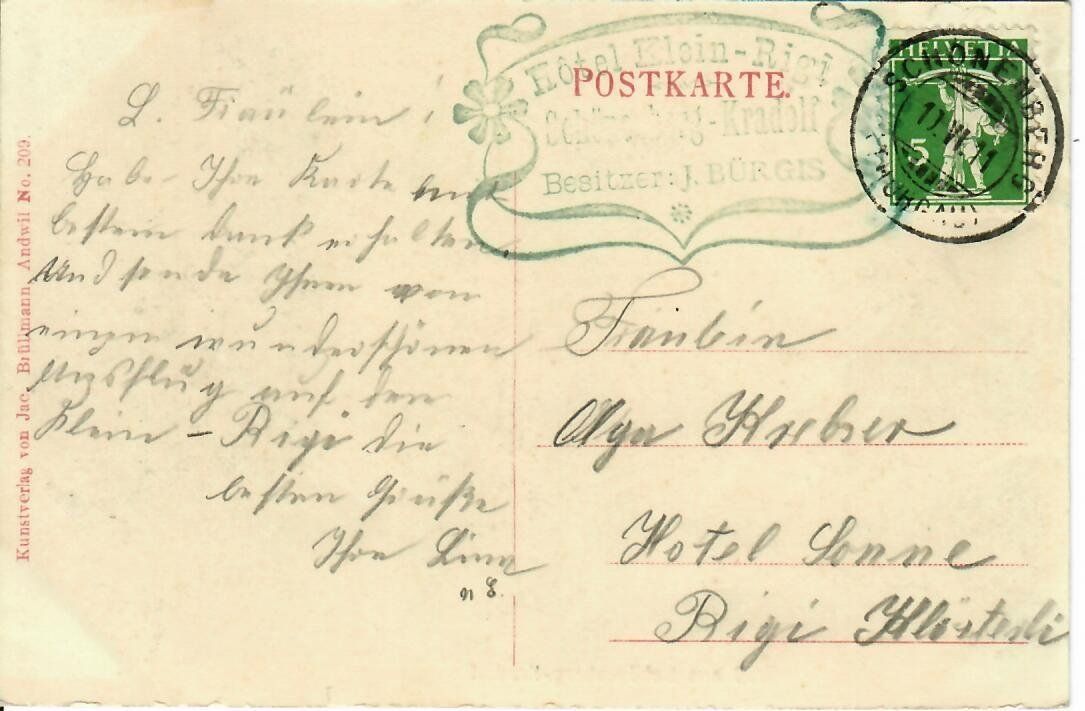 Kunstverlag von Jac. Brüllmann, Andwil No. 209.
Hôtel Klein-Rigi
Schönenberg-Kradolf
Besitzer: J. BÜRGIS
POSTKARTE.
HELVETIA
5
SCHÖNENBERG
11
(THURGAU)
L. Fräulein!
Habe Ihre Karte
bestem Dank erhalten
und sende Ihnen von
einem wunderschönen
Ausflug auf den
Klein-Rigi die
besten Grüße
Ihre
Fräulein
Olga
Hotel Sonne
Rigi Klösterli